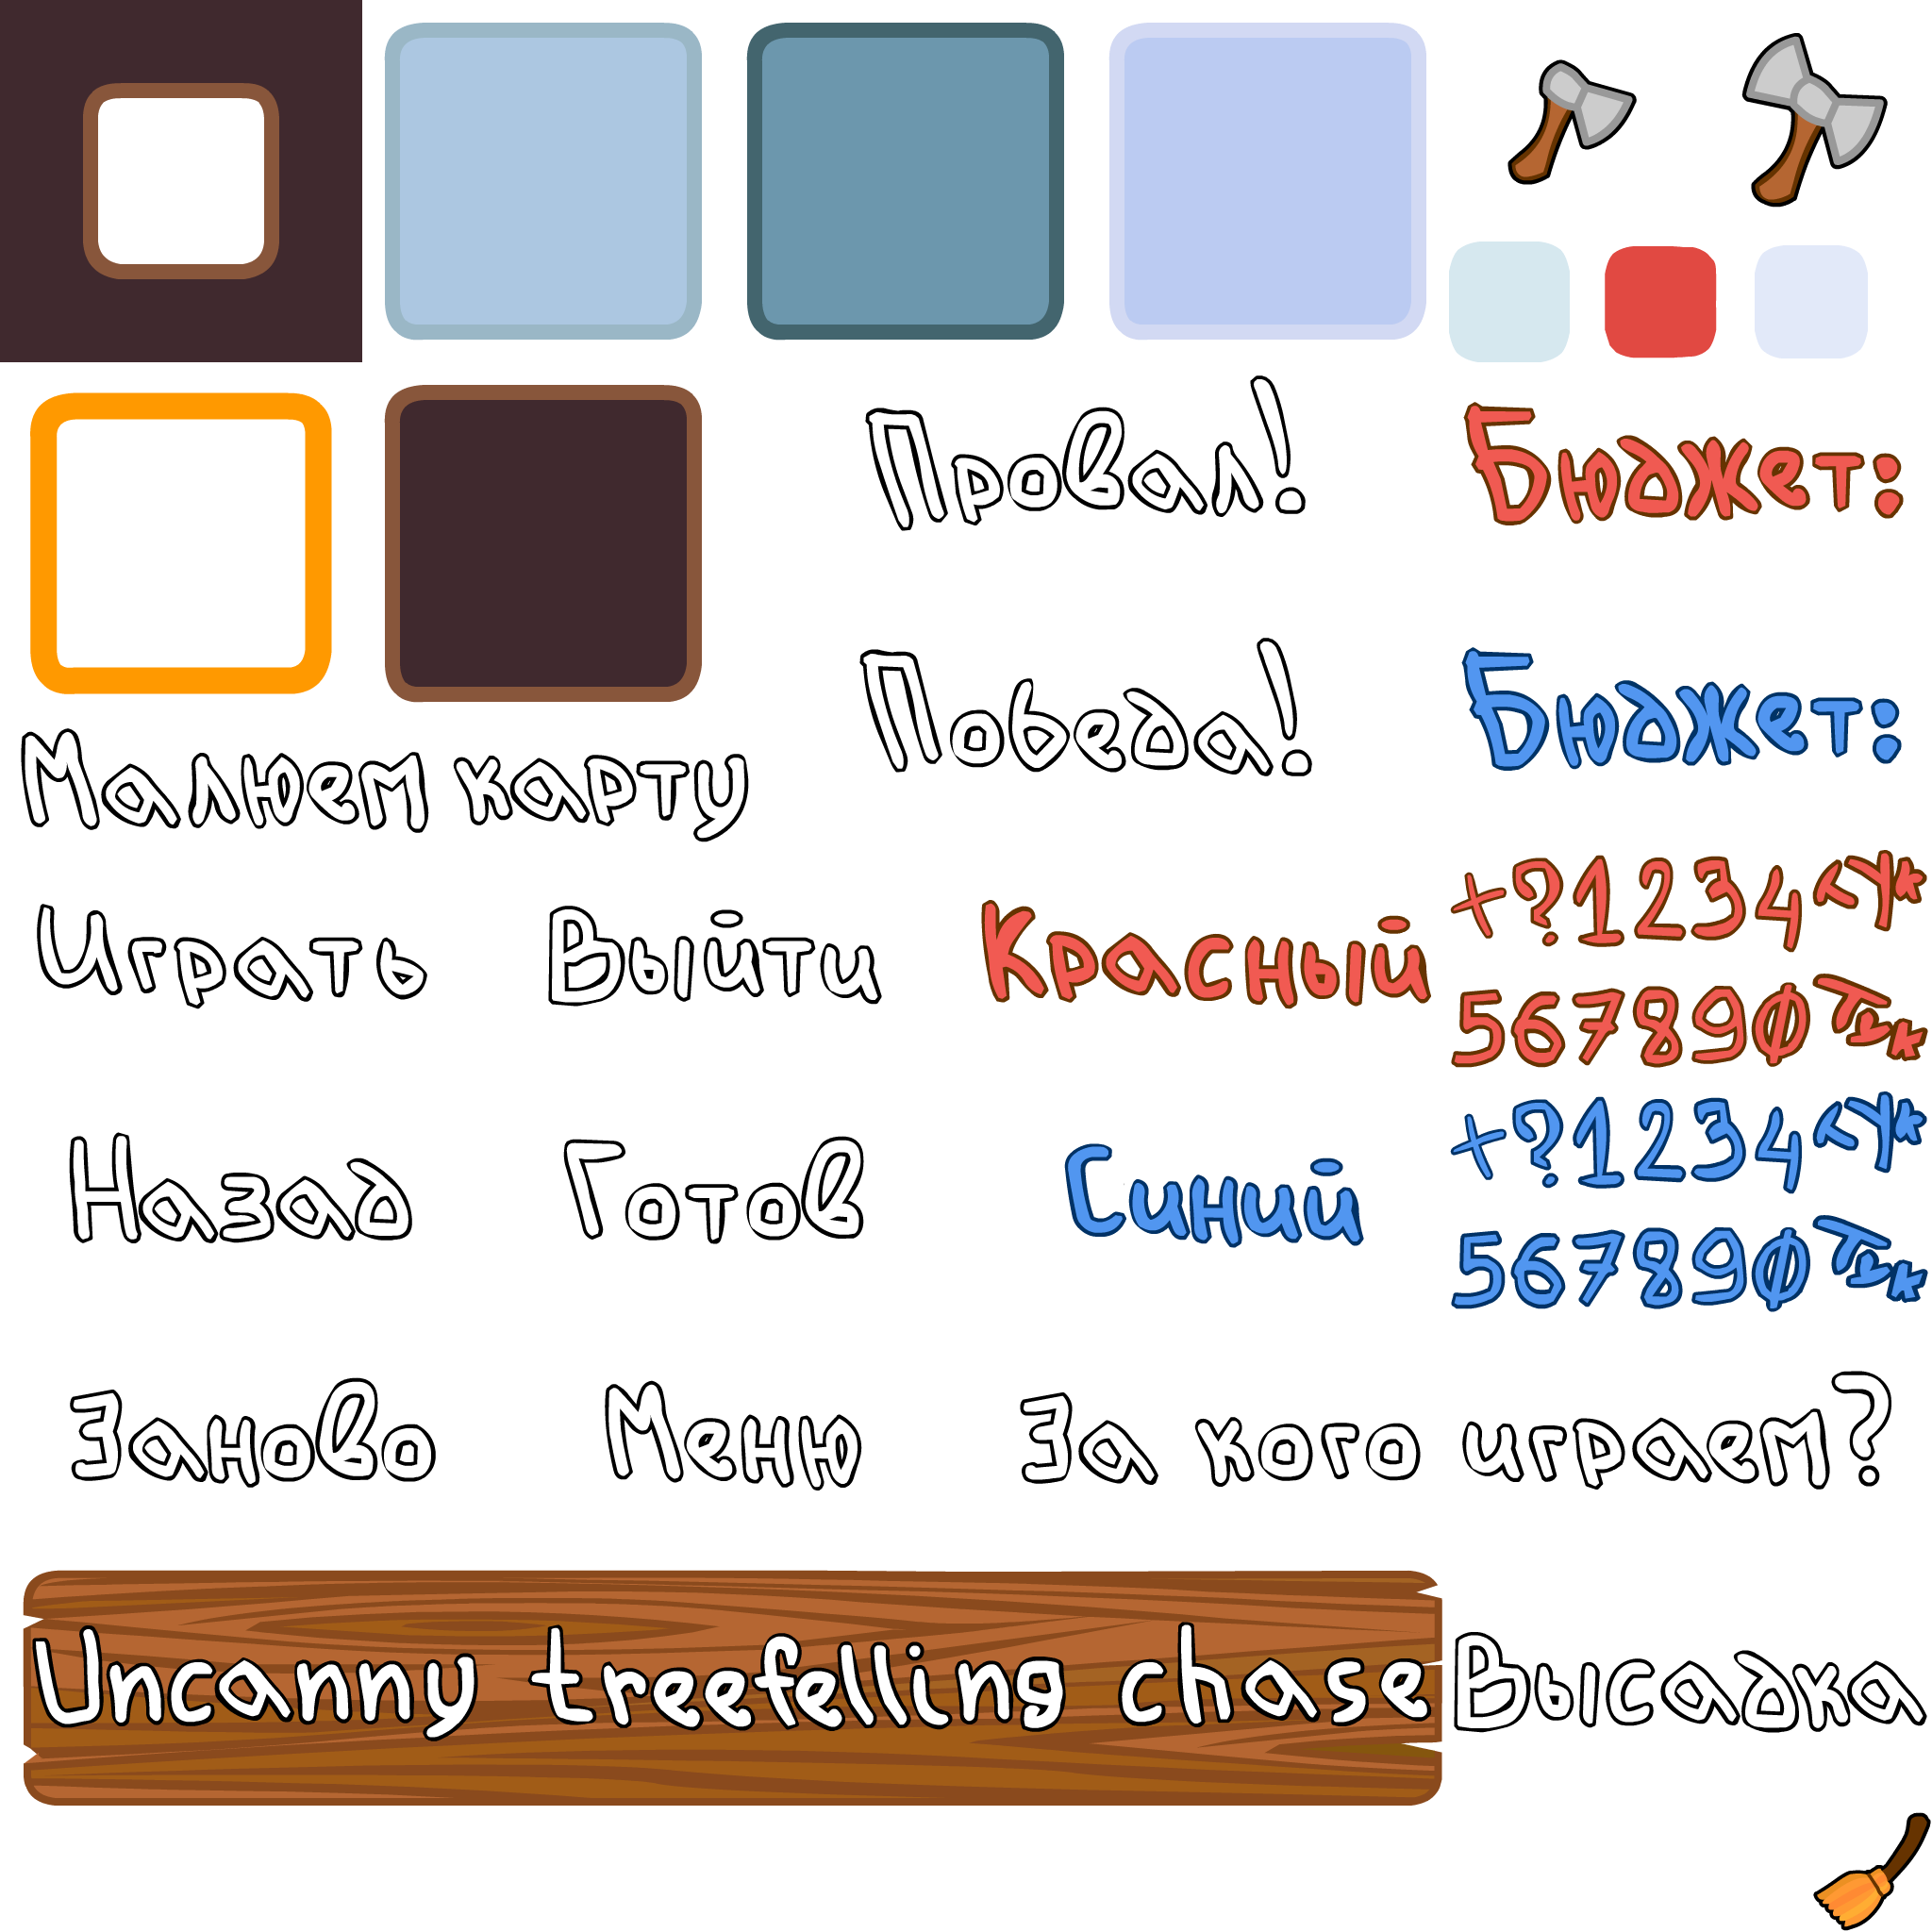 Провал!
Бюджет:
Победа!
Бюджет:
Малюем карту
Играть Выйти Красный
+?1234
567890
Назад Готов Синий
+?1234
567890
Заново Меню За кого играем?
Uncanny treefelling chase Высадка